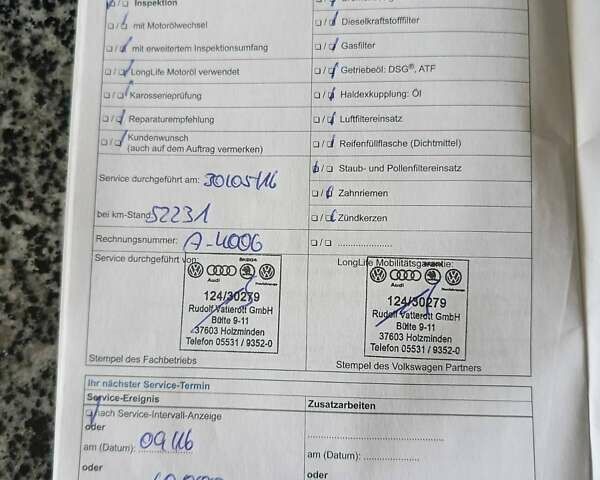 □/□ Inspektion
□/□ mit Motorölwechsel
□/□ mit erweitertem Inspektionsumfang
□/□ LongLife Motoröl verwendet
□/□ Karosserieprüfung
□/□ Reparaturempfehlung
□/□ Kundenwunsch
(auch auf dem Auftrag vermerken)
Service durchgeführt am: 30/05/16
bei km-Stand 52231
Rechnungsnummer: A-4006
□/□ Dieselkraftstofffilter
□/□ Gasfilter
□/□ Getriebeöl: DSG®, ATF
□/□ Haldexkupplung: Öl
□/□ Luftfiltereinsatz
□/□ Reifenfüllflasche (Dichtmittel)
□/□ Staub- und Pollenfiltereinsatz
□/□ Zahnriemen
□/□ Zündkerzen
□/□ ......................
Service durchgeführt von:
ŠKODA
Audi
124/30279
Rudolf Vatterott GmbH
Bülte 9-11
37603 Holzminden
Telefon 05531 / 9352-0
Stempel des Fachbetriebs
LongLife Mobilitätsgarantie:
Audi
124/30279
Rudolf Vatterott GmbH
Bülte 9-11
37603 Holzminden
Telefon 05531 / 9352-0
Stempel des Volkswagen Partners
Ihr nächster Service-Termin
Service-Ereignis
□ nach Service-Intervall-Anzeige
oder
am (Datum): 09/16
oder
Zusatzarbeiten
am (Datum): ......................
oder